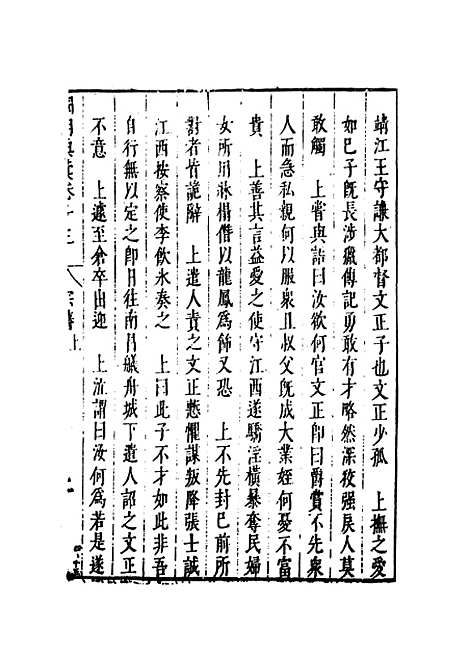 靖江王守謙大都督文正子也文正少孤　上撫之愛
如己子旣長涉獵傳記勇敢有才略然深狡强戾人莫
敢觸　上嘗與語曰汝欲何官文正卽曰爵賞不先衆
人而急私親何以服衆且叔父旣成大業姪何憂不富
貴　上善其言益愛之使守江西遂驕淫橫暴奪民婦
女所用牀榻僭以龍鳳爲飾又恐　上不先封己前所
對者皆詭辭　上遣人責之文正慙懼謀叛降張士誠
江西按察使李飮氷奏之　上曰此子不才如此非吾
自行無以定之卽日往南昌艤舟城下遣人詔之文正
不意　上遽至倉卒出迎　上泣謂曰汝何爲若是遂
典彙卷十三
宗藩上